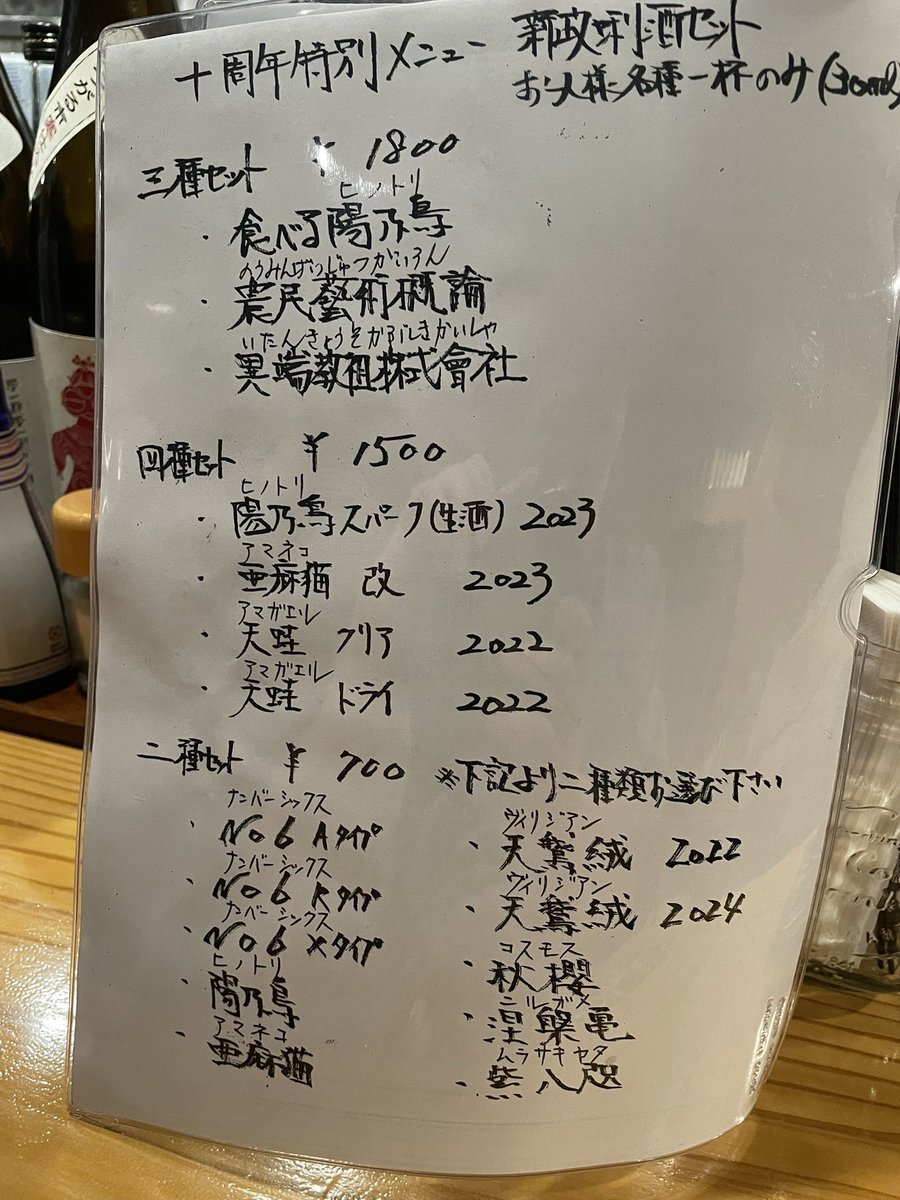 十周年特別メニュー
新政唎酒セット
お一人様各種一杯のみ(30ml)
三種セット ¥1800
ヒノトリ
・食べる陽乃鳥
のうみんげいじゅつがいろん
・農民藝術概論
いたんきょうそかぶしきかいしゃ
・異端教祖株式會社
四種セット ¥1500
ヒノトリ
・陽乃鳥スパーク(生酒) 2023
アマネコ
・亜麻猫 改 2023
アマガエル
・天蛙 クリア 2022
アマガエル
・天蛙 ドライ 2022
二種セット ¥700 ※下記より二種類お選び下さい
ナンバーシックス
・No6 Aタイプ
ナンバーシックス
・No6 Rタイプ
ナンバーシックス
・No6 Xタイプ
ヒノトリ
・陽乃鳥
アマネコ
・亜麻猫
ヴィリジアン
・天鵞絨 2022
ヴィリジアン
・天鵞絨 2024
コスモス
・秋櫻
ニルガメ
・涅槃亀
ムラサキヤタ
・紫八咫